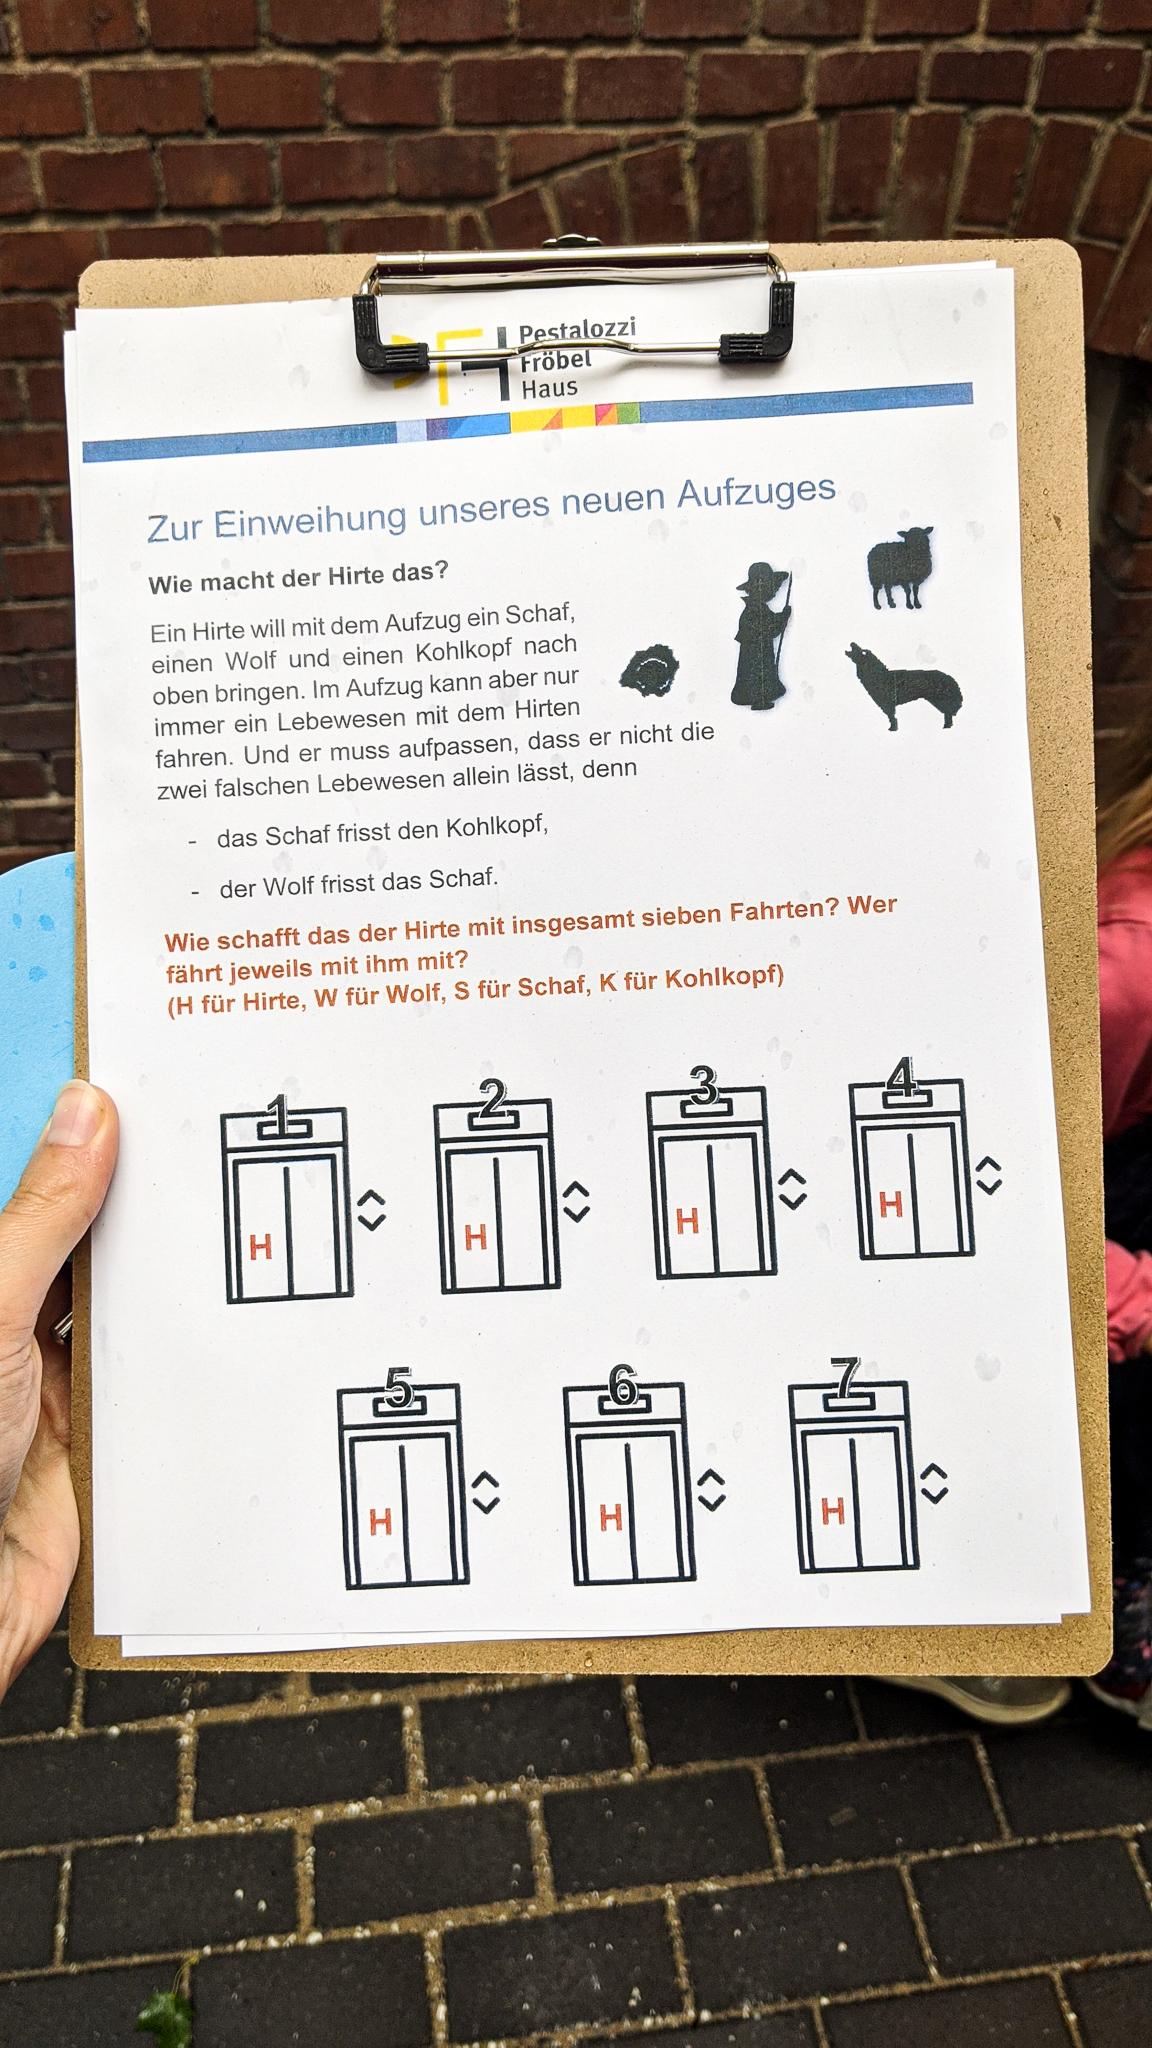 Pestalozzi
Fröbel
Haus
Zur Einweihung unseres neuen Aufzuges
Wie macht der Hirte das?
Ein Hirte will mit dem Aufzug ein Schaf,
einen Wolf und einen Kohlkopf nach
oben bringen. Im Aufzug kann aber nur
immer ein Lebewesen mit dem Hirten
fahren. Und er muss aufpassen, dass er nicht die
zwei falschen Lebewesen allein lässt, denn
- das Schaf frisst den Kohlkopf,
- der Wolf frisst das Schaf.
Wie schafft das der Hirte mit insgesamt sieben Fahrten? Wer
fährt jeweils mit ihm mit?
(H für Hirte, W für Wolf, S für Schaf, K für Kohlkopf)
1 2 3 4
H H H H
5 6 7
H H H